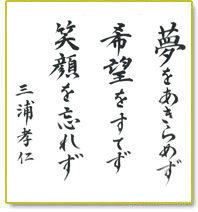 夢をあきらめず
希望をすてず
笑顔を忘れず
三浦孝仁